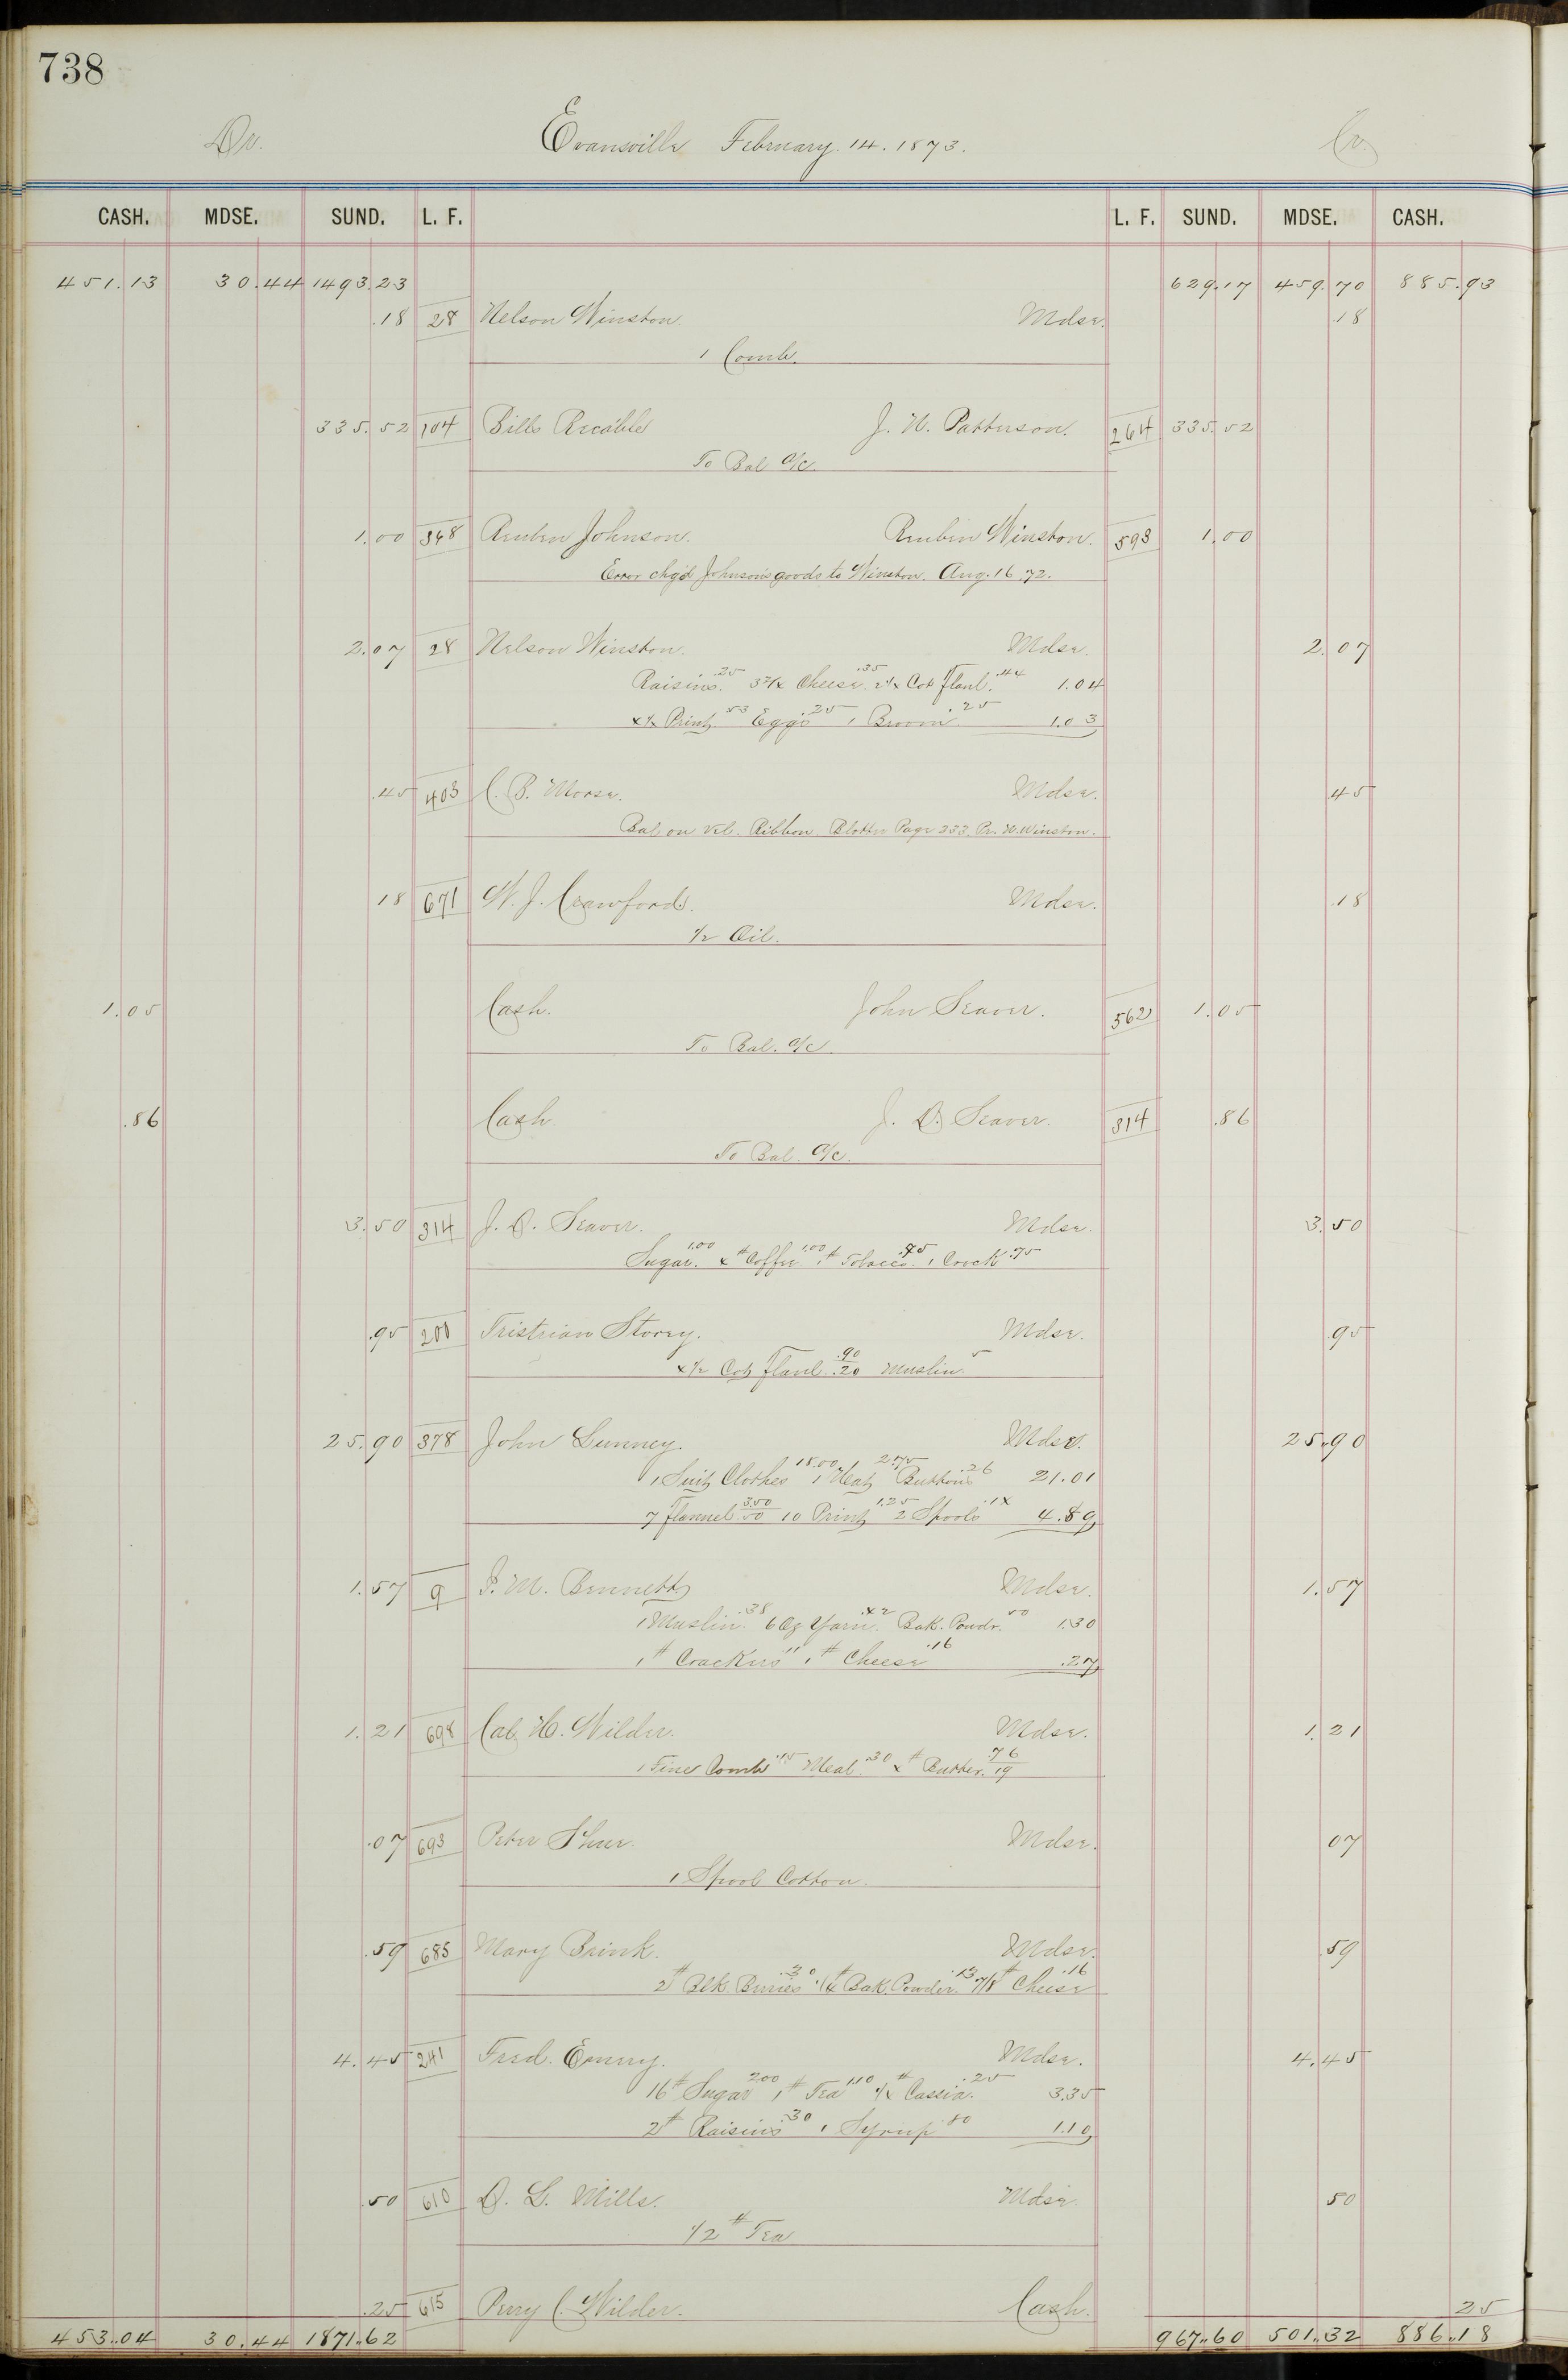 738
Dr. Evansville February. 14. 1873. Cr.
CASH. MDSE. SUND. L. F. L. F. SUND. MDSE. CASH.
451.13 30.44 1493.23 629.17 459.70 885.93
.18 28 Nelson Winston. Mdse. .18
1 Comb.
335.52 104 Bills Recable J. W. Patterson. 264 335.52
To Bal a/c.
1.00 348 Reuben Johnson. Reubin Winston. 593 1.00
Error chg'd Johnsons goods to Winston. Aug. 16. 72.
2.07 28 Nelson Winston. Mdse. 2.07
Raisins. .25 Cheese .35 Cot Flanl. .44 1.04
Print .53 Eggs .25 1 Broom .25 1.03
.45 403 C. B. Morse. Mdse. .45
Bal on Vel. Ribbon. Blotter Page 333. Pr. N. Winston.
18 671 W. J. Crawford. Mdse. .18
1/2 Oil.
1.05 Cash. John Seaver. 562 1.05
To Bal. a/c
.86 Cash J. D. Seaver. 314 .86
To Bal. a/c.
3.50 314 J. D. Seaver. Mdse. 3.50
Sugar. 1.00 4# Coffee 1.00 1# Tobacco .75 1 Crock .75
.95 200 Tristrian Storey. Mdse. .95
4 1/2 Cot Flanl. .90 .20 Muslin 5
25.90 378 John Lunney. Mdse. 25.90
1 Suit Clothes 18.00 1 Hat 2.75 Buttons .26 21.01
7 Flannel 3.50 50 10 Print 1.25 2 Spools .14 4.89
1.57 9 J. M. Bennett Mdse. 1.57
1 Muslin .38 6 Oz Yarn. .42 Bak. Powdr. 50 1.30
1# Crackers 11 1# Cheese .16 .27
1.21 698 Cal H. Wilder. Mdse. 1.21
1 Fine Comb .15 Meal .30 4# Butter. .76 19
.07 693 Peter Shue. Mdse. 07
1 Spool Cotton.
.59 685 Mary Brink. Mdse. .59
2# Blk. Burries .30 1/4# Bak. Powder. .13 7/8# Cheese .16
4.45 241 Fred. Emery. Mdse. 4.45
16# Sugar 2.00 1# Tea 1.10 1/4# Cassia. .25 3.35
2# Raisins .30 1 Syrup 80 1.10
.50 610 D. L. Mills. Mdse. 50
1/2# Tea
.25 615 Perry C. Wilder. Cash. 25
453.04 30.44 1871.62 967.60 501.32 886.18